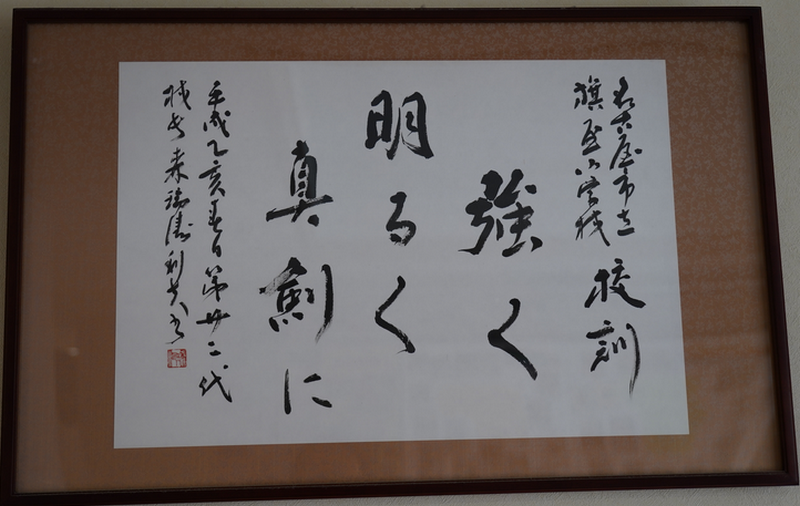 名古屋市立
旗屋小学校
校訓
強く
明るく
真剣に
平成乙亥春日第廿二代
校長